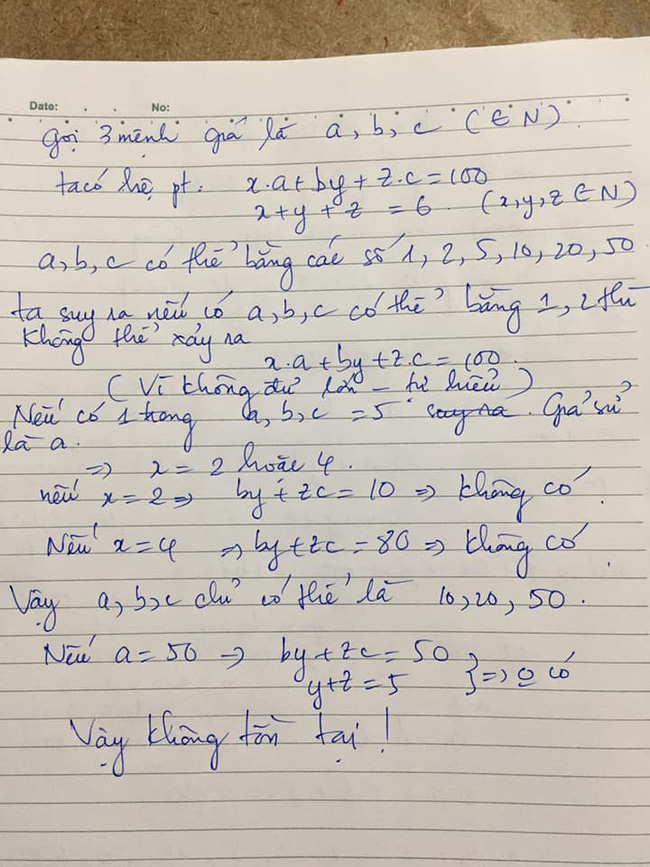 Date: . . No:
Gọi 3 mệnh giá là a, b, c (∈ N)
ta có hệ pt. x.a + by + z.c = 100
x + y + z = 6 (x, y, z ∈ N)
a, b, c có thể bằng các số 1, 2, 5, 10, 20, 50
ta suy ra nếu có a, b, c có thể bằng 1, 2 thì
không thể xảy ra
x.a + by + z.c = 100.
(Vì không đủ lớn - tự hiểu)
Nếu có 1 trong a, b, c = 5 suy ra. Giả sử
là a.
=> x = 2 hoặc 4.
nếu x = 2 => by + zc = 10 => không có
Nếu x = 4 => by + zc = 80 => không có
Vậy a, b, c chỉ có thể là 10, 20, 50.
Nếu a = 50 -> by + zc = 50
y + z = 5 } => o có
Vậy không tồn tại!